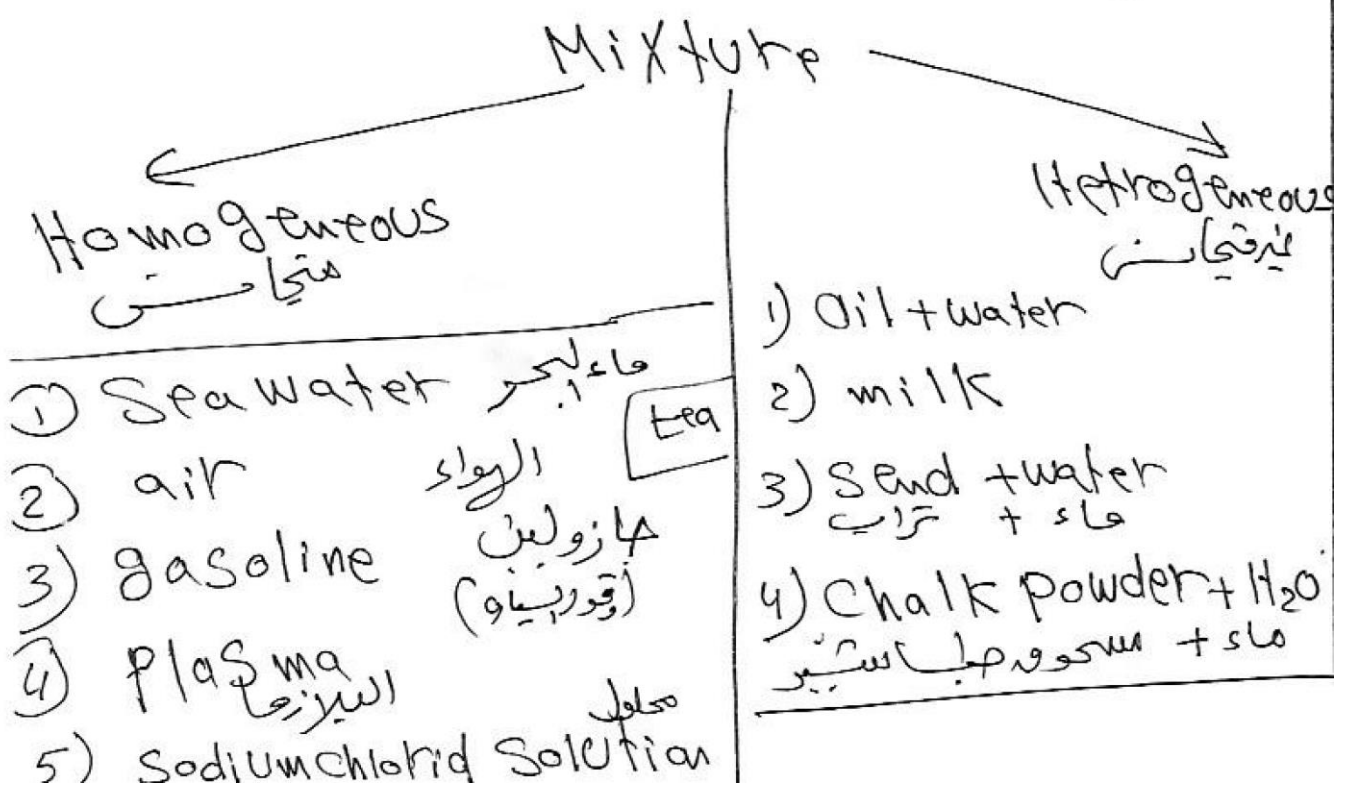 Mixture
Homogeneous
متجانس
① Sea water ماء البحر
tea
② air الهواء
3) gasoline جازولين
④ Plasma
البلازما
5) Sodium chlorid Solution محلول
Hetrogeneous
غير متجانس
1) Oil + water
2) milk
3) Send + water
ماء + تراب
4) Chalk powder + H₂O
ماء + مسحوق طباشير